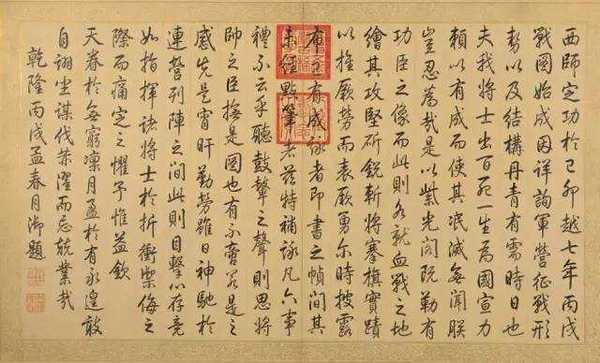 西師定功於己卯越七年丙戌
戰圖始成因詳詢軍營征戰形
勢以及結構丹青有需時日也
夫我將士出百死一生為國宣力
賴以有成而使其泯滅無聞朕
豈忍為哉是以紫光閣既勒有
功臣之像而此則各就血戰之地
繪其攻堅斫銳斬將搴旗實蹟
以旌厥勞而表厥勇爾時披露
布已有成詠者即書之幀間其
未經點筆者茲特補詠凡六事
禮不云乎聽鼓鼙之聲則思將
帥之臣撫是圖也有不啻若是之
感先是宵旰勤勞雖日神馳於
連營列陣之間此則目擊以存竟
如指揮訣將士於折衝禦侮之
際而痛定之懼予惟益欽
天眷於無窮凜月盈於有永遑敢
自詡坐謀伐濯而忘兢業哉
乾隆丙戌孟春月御題